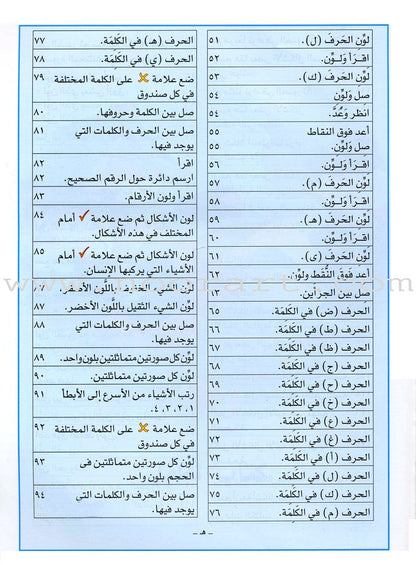 لوِّن الحَرفَ (ل). ٥١
اقـرَأ وَلـوِّن. ٥٢
لوِّن الحَرفَ (ك). ٥٣
صل ولوِّن ٥٤
انظر وَعُدَّ. ٥٤
أعد فوق النقاط ٥٥
صل ولوِّن. ٥٥
اقـرَأ وَلـوِّن. ٥٦
لوِّن الحَرفَ (م). ٥٧
اقـرَأ وَلـوِّن. ٥٨
لوِّن الحَرفَ (هـ). ٥٩
اقـرَأ وَلـوِّن. ٦٠
لوِّن الحَرفَ (ى). ٦١
أعد فوقَ النُّقَط ولوِّن. ٦٢
صل بين الجزأين. ٦٣
الحرف (ض) في الكَلِمَة. ٦٥
الحرف (ط) في الكَلِمَة. ٦٦
الحرف (ظ) في الكَلِمَة. ٦٧
الحرف (ج) في الكَلِمَة. ٦٨
الحرف (ح) في الكَلِمَة. ٦٩
الحرف (خ) في الكَلِمَة. ٧٠
الحرف (ع) في الكَلِمَة. ٧١
الحرف (غ) في الكَلِمَة. ٧٢
الحرف (أ) في الكَلِمَة. ٧٣
الحرف (ل) في الكَلِمَة. ٧٤
الحرف (ك) في الكَلِمَة. ٧٥
الحرف (م) في الكَلِمَة. ٧٦
الحرف (هـ) في الكَلِمَة. ٧٧
الحرف (ي) في الكَلِمَة. ٧٨
ضع علامة ✖ على الكلمة المختلفة ٧٩
في كل صندوق
صل بين الكلمة وحروفها. ٨٠
صل بين الحرف والكلمات التي ٨١
يوجد فيها.
اقرأ ٨٢
ارسم دائرة حول الرقم الصحيح. ٨٢
اقرأ ولون الأرقام. ٨٣
لون الأشكال ثم ضع علامة ✓ أمام ٨٤
المختلف في هذه الأشكال.
لون الأشكال ثم ضع علامة ✓ أمام ٨٥
الأشياء التي يركبها الإنسان.
لوِّن الشيء الخفيف باللَّون الأصفر. ٨٦
لوِّن الشيء الثقيل باللَّون الأخضر. ٨٧
صل بين الحرف والكلمات التي ٨٨
يوجد فيها.
لوِّن كل صورتين متماثلتين بلون واحد. ٨٩
لوِّن كل صورتين متماثلتين. ٩٠
رتب الأشياء من الأسرع إلى الأبطأ ٩١
١، ٢، ٣، ٤.
ضع علامة ✖ على الكلمة المختلفة ٩٢
في كل صندوق
لوِّن كل صورتين متماثلتين فى ٩٣
الحجم بلون واحد.
صل بين الحرف والكلمات التي ٩٤
يوجد فيها.
- هـ -